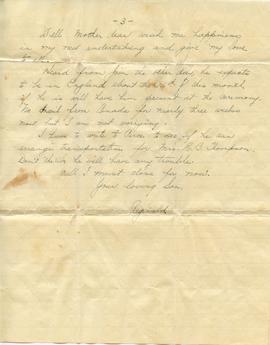 - 3 -
Well Mother dear wish me happiness
in my new undertaking and give my love
to
Heard from the other day he expects
to be in England about of this month,
if he is will have him present at the ceremony.
No word from Canada for nearly three weeks
now but I am not worrying.
I have to write to to see if he can
arrange transportation for Mrs. R. B. Thompson.
Don't think he will have any trouble.
Well I must close for now.
Your loving Son,
Reginald